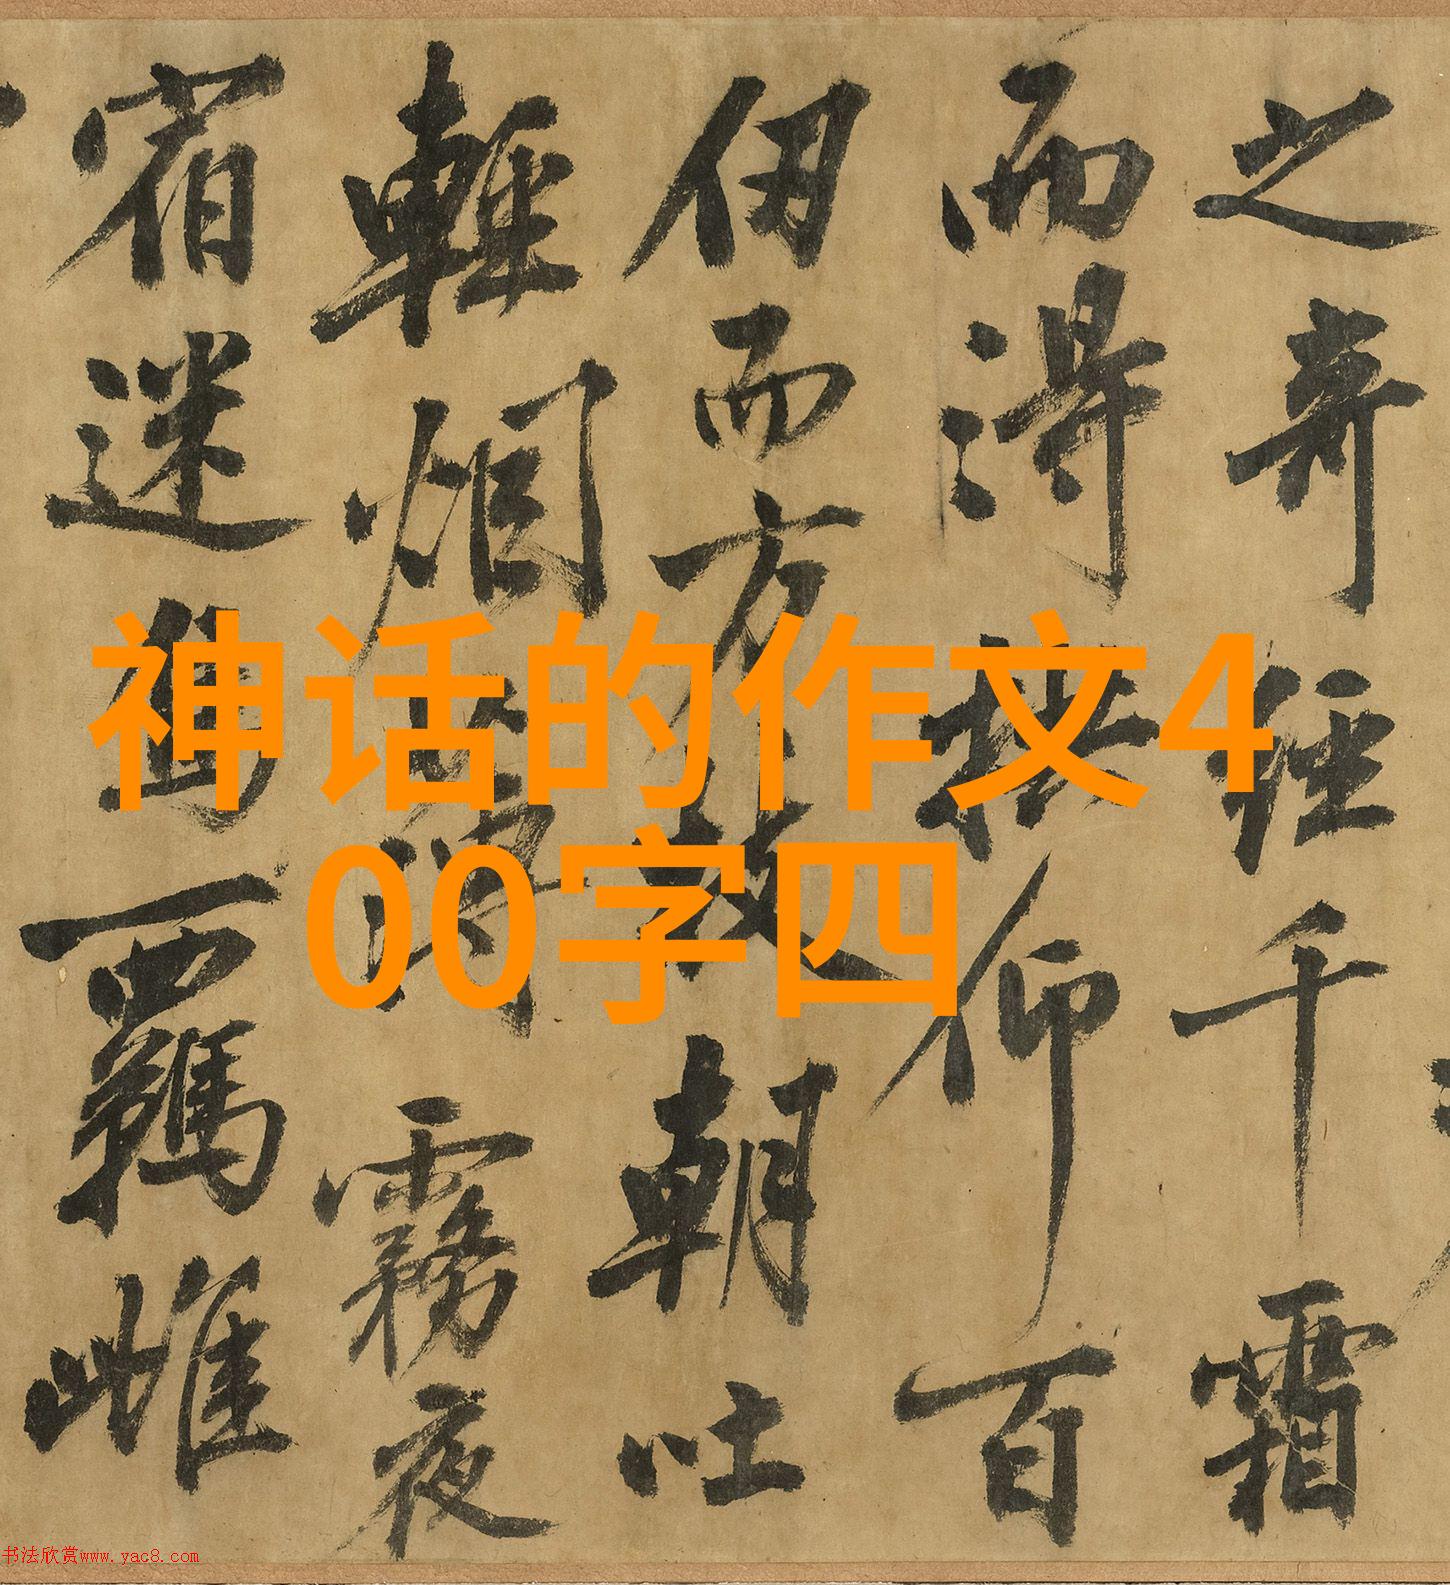 之奇經千霜
而得拱仰百
仞而方枝朝吐
輕烟薄霧夜
宿迷鳥羈雌
神话的作文4
00字四
书法欣赏www.yac8.com